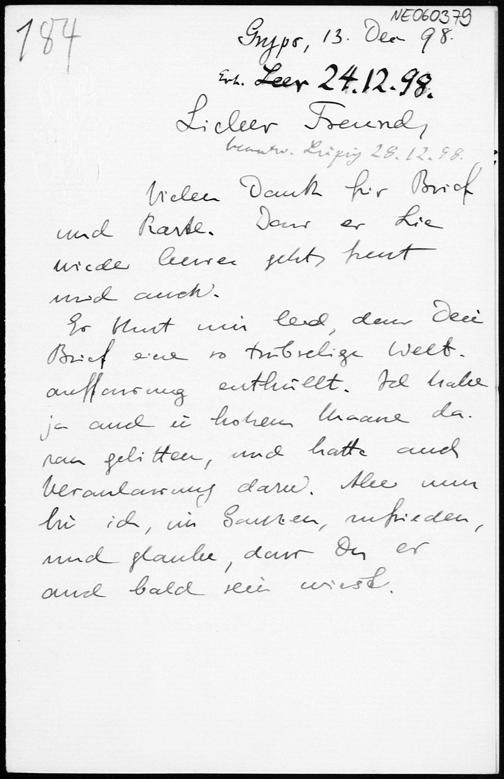 NE060379
184
Gryps, 13. Dez 98.
Erh. Leer 24.12.98.
Lieber Freund,
beantw. Leipzig 28.12.98.
Vielen Dank für Brief
und Karte. Dass es Dir
wieder besser geht, freut
mich auch.
Es thut mir leid, dass Dein
Brief eine so trübselige Welt-
auffassung enthüllt. Ich habe
ja auch in hohem Maasse da-
ran gelitten, und hatte auch
Veranlassung dazu. Aber nun
bin ich, im Ganzen, zufrieden,
und glaube, dass Du es
auch bald sein wirst.